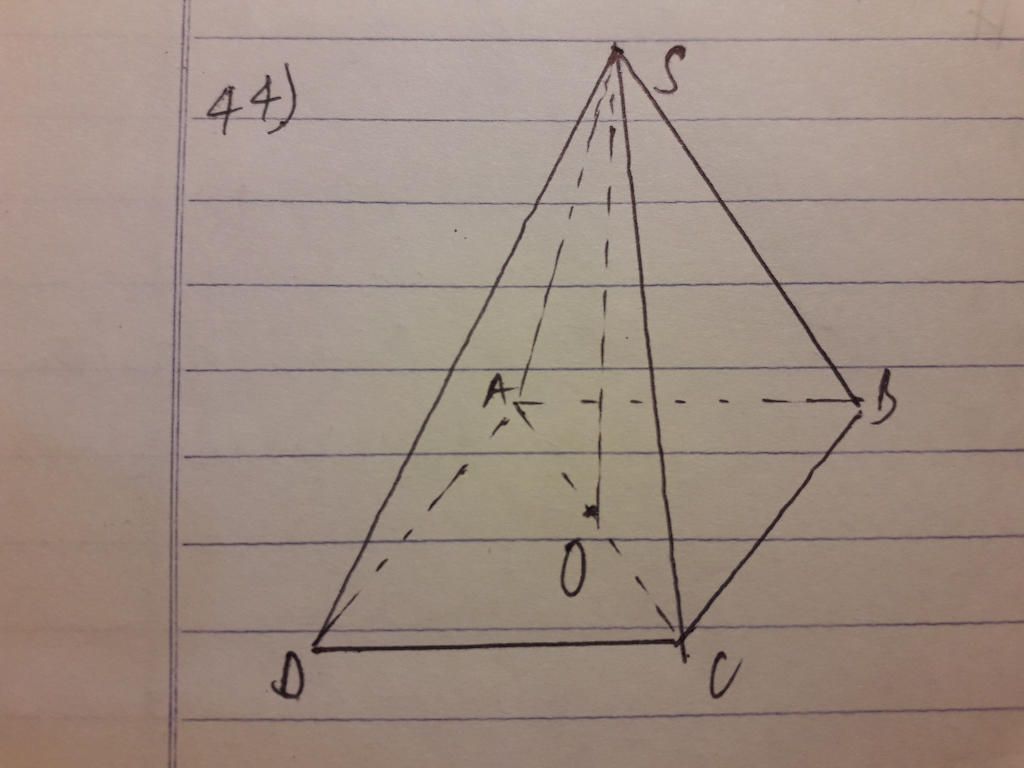 44)
S
A
B
O
D
C